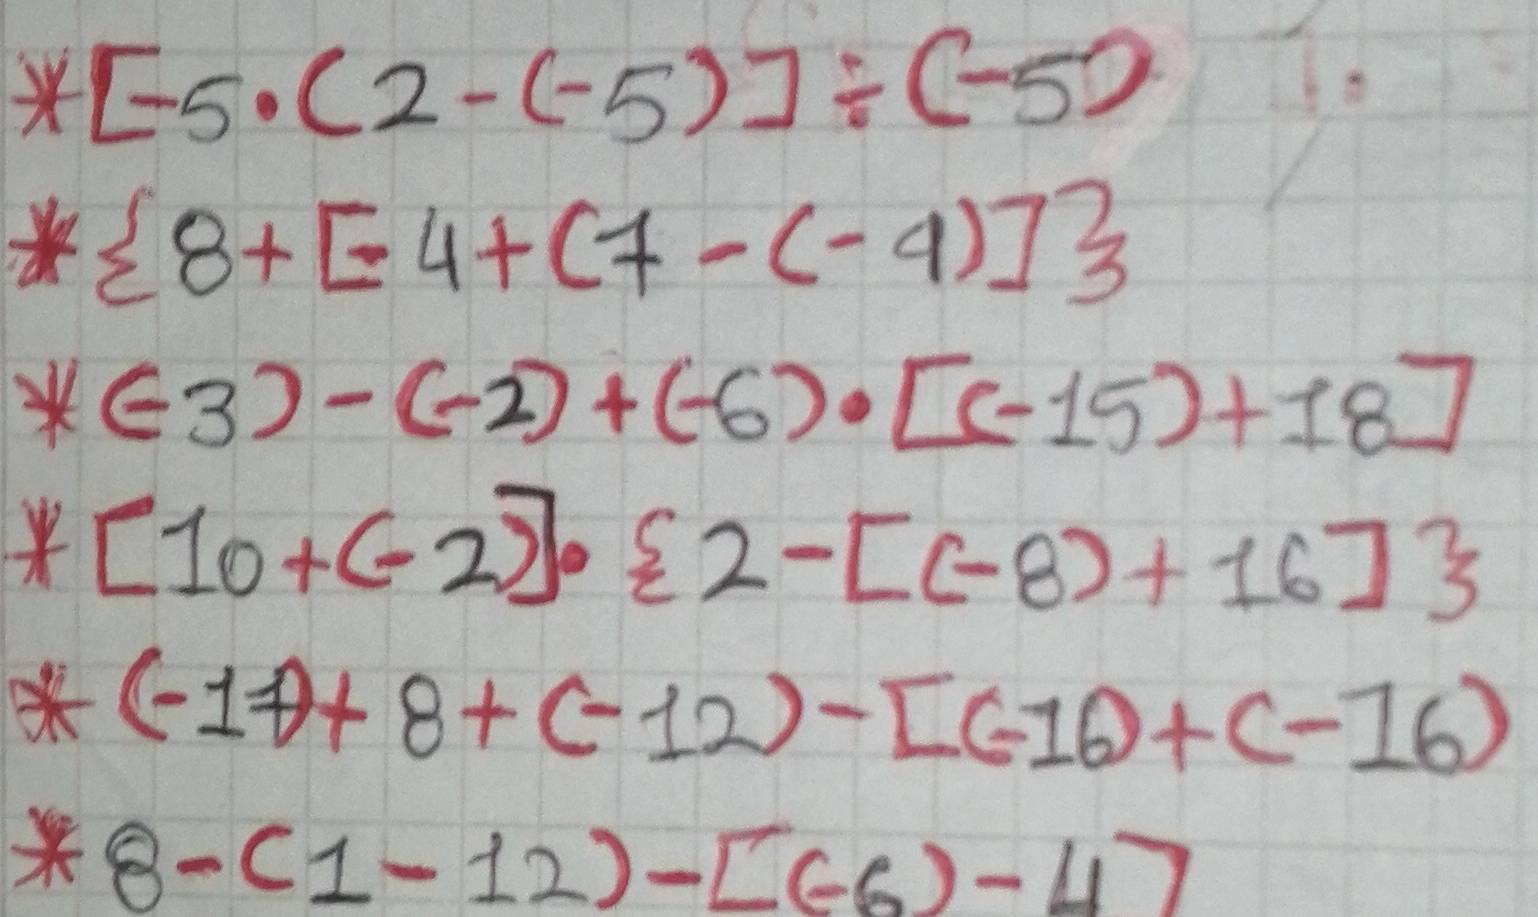 *[-5•(2-(-5)]÷(-5)
*{8+[-4+(7-(-4)]}
*(-3)-(-2)+(-6)•[(-15)+18]
*[10+(-2)]•{2-[(-8)+16]}
*(-17)+8+(-12)-[(-16)+(-16)
*8-(1-12)-[(-6)-4]